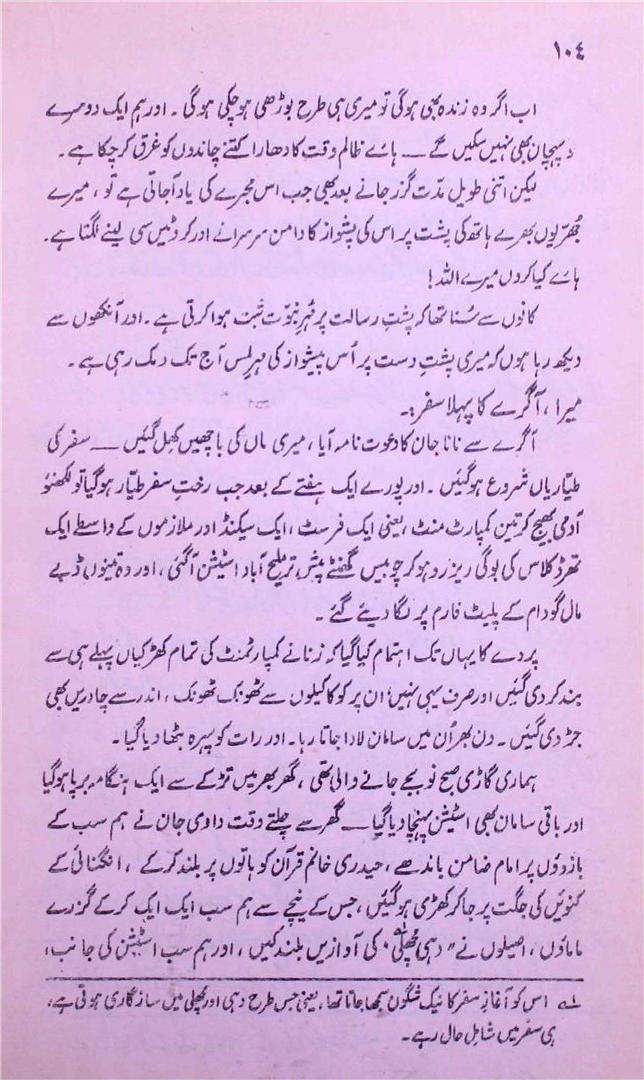 ۱۰٤
اب اگر وہ زندہ بھی ہوگی تو میری ہی طرح بوڑھی ہو چکی ہوگی ۔ اور ہم ایک دوسرے
پہچان بھی نہیں سکیں گے — ہائے ظالم وقت کا دھارا کتنے چاندوں کو غرق کر چکا ہے ۔
لیکن اتنی طویل مدّت گزر جانے بعد بھی جب اس مجرے کی یاد آجاتی ہے تو ، میرے
جھُرّیوں بھرے ہاتھ کی پشت پر اس کی پشواز کا دامن سرسرانے اور کروٹیں سی لینے لگتا ہے ۔
ہائے کیا کروں میرے اللہ !
کانوں سے سُنا تھا کہ پشتِ رسالت پر مُہرِ نبوّت ثبت ہوا کرتی ہے ۔ اور آنکھوں سے
دیکھ رہا ہوں کہ میری پشتِ دست پر اُس پیشواز کی مہرِ لمس آج تک دمک رہی ہے ۔
میرا ، آگرے کا پہلا سفر :۔
آگرے سے نانا جان کا دعوت نامہ آیا ، میری ماں کی باچھیں کھِل گئیں — سفر کی
طیّاریاں شروع ہوگئیں ۔ اور پورے ایک ہفتے کے بعد جب رختِ سفر طیّار ہوگیا تو لکھنؤ
آدمی بھیج کر تین کمپارٹ منٹ ، یعنی ایک فرسٹ ، ایک سیکنڈ اور ملازموں کے واسطے ایک
تھرڈ کلاس کی بوگی ریزرو ہو کر چوبیس گھنٹے پیش تر ملیح آباد اسٹیشن آگئی ، اور وہ تینوں ڈبے
مال گودام کے پلیٹ فارم پر لگا دیئے گئے ۔
پردے کا یہاں تک اہتمام کیا گیا کہ زنانے کمپارٹمنٹ کی تمام کھڑکیاں پہلے ہی سے
بند کر دی گئیں اور صرف یہی نہیں ؛ ان پر کوکا کیلوں سے ٹھونک ٹھونک ، اندر سے چادریں بھی
جڑ دی گئیں ۔ دن بھر اُن میں سامان لادا جاتا رہا ۔ اور رات کو پہرہ بٹھا دیا گیا ۔
ہماری گاڑی صبح نو بجے جانے والی تھی ، گھر بھر میں تڑکے سے ایک ہنگامہ برپا ہوگیا
اور باقی سامان بھی اسٹیشن پہنچا دیا گیا — گھر سے چلتے وقت دادی جان نے ہم سب کے
بازوؤں پر امام ضامن باندھے ، حیدری خانم قرآن کو ہاتوں پر بلند کر کے ، انگنائی کے
کنوئیں کی جگت پر جا کر کھڑی ہوگئیں ، جس کے نیچے سے ہم سب ایک ایک کر کے گزرے
ماماؤں ، اصیلوں نے " دہی مچھلی " کی آوازیں بلند کیں ، اور ہم سب اسٹیشن کی جانب ،
؎۱ اس کو آغازِ سفر کا نیک شگون سمجھا جاتا تھا ، یعنی جس طرح دہی اور مچھلی میں سازگاری ہوتی ہے ،
ہی سفر میں شاملِ حال رہے ۔